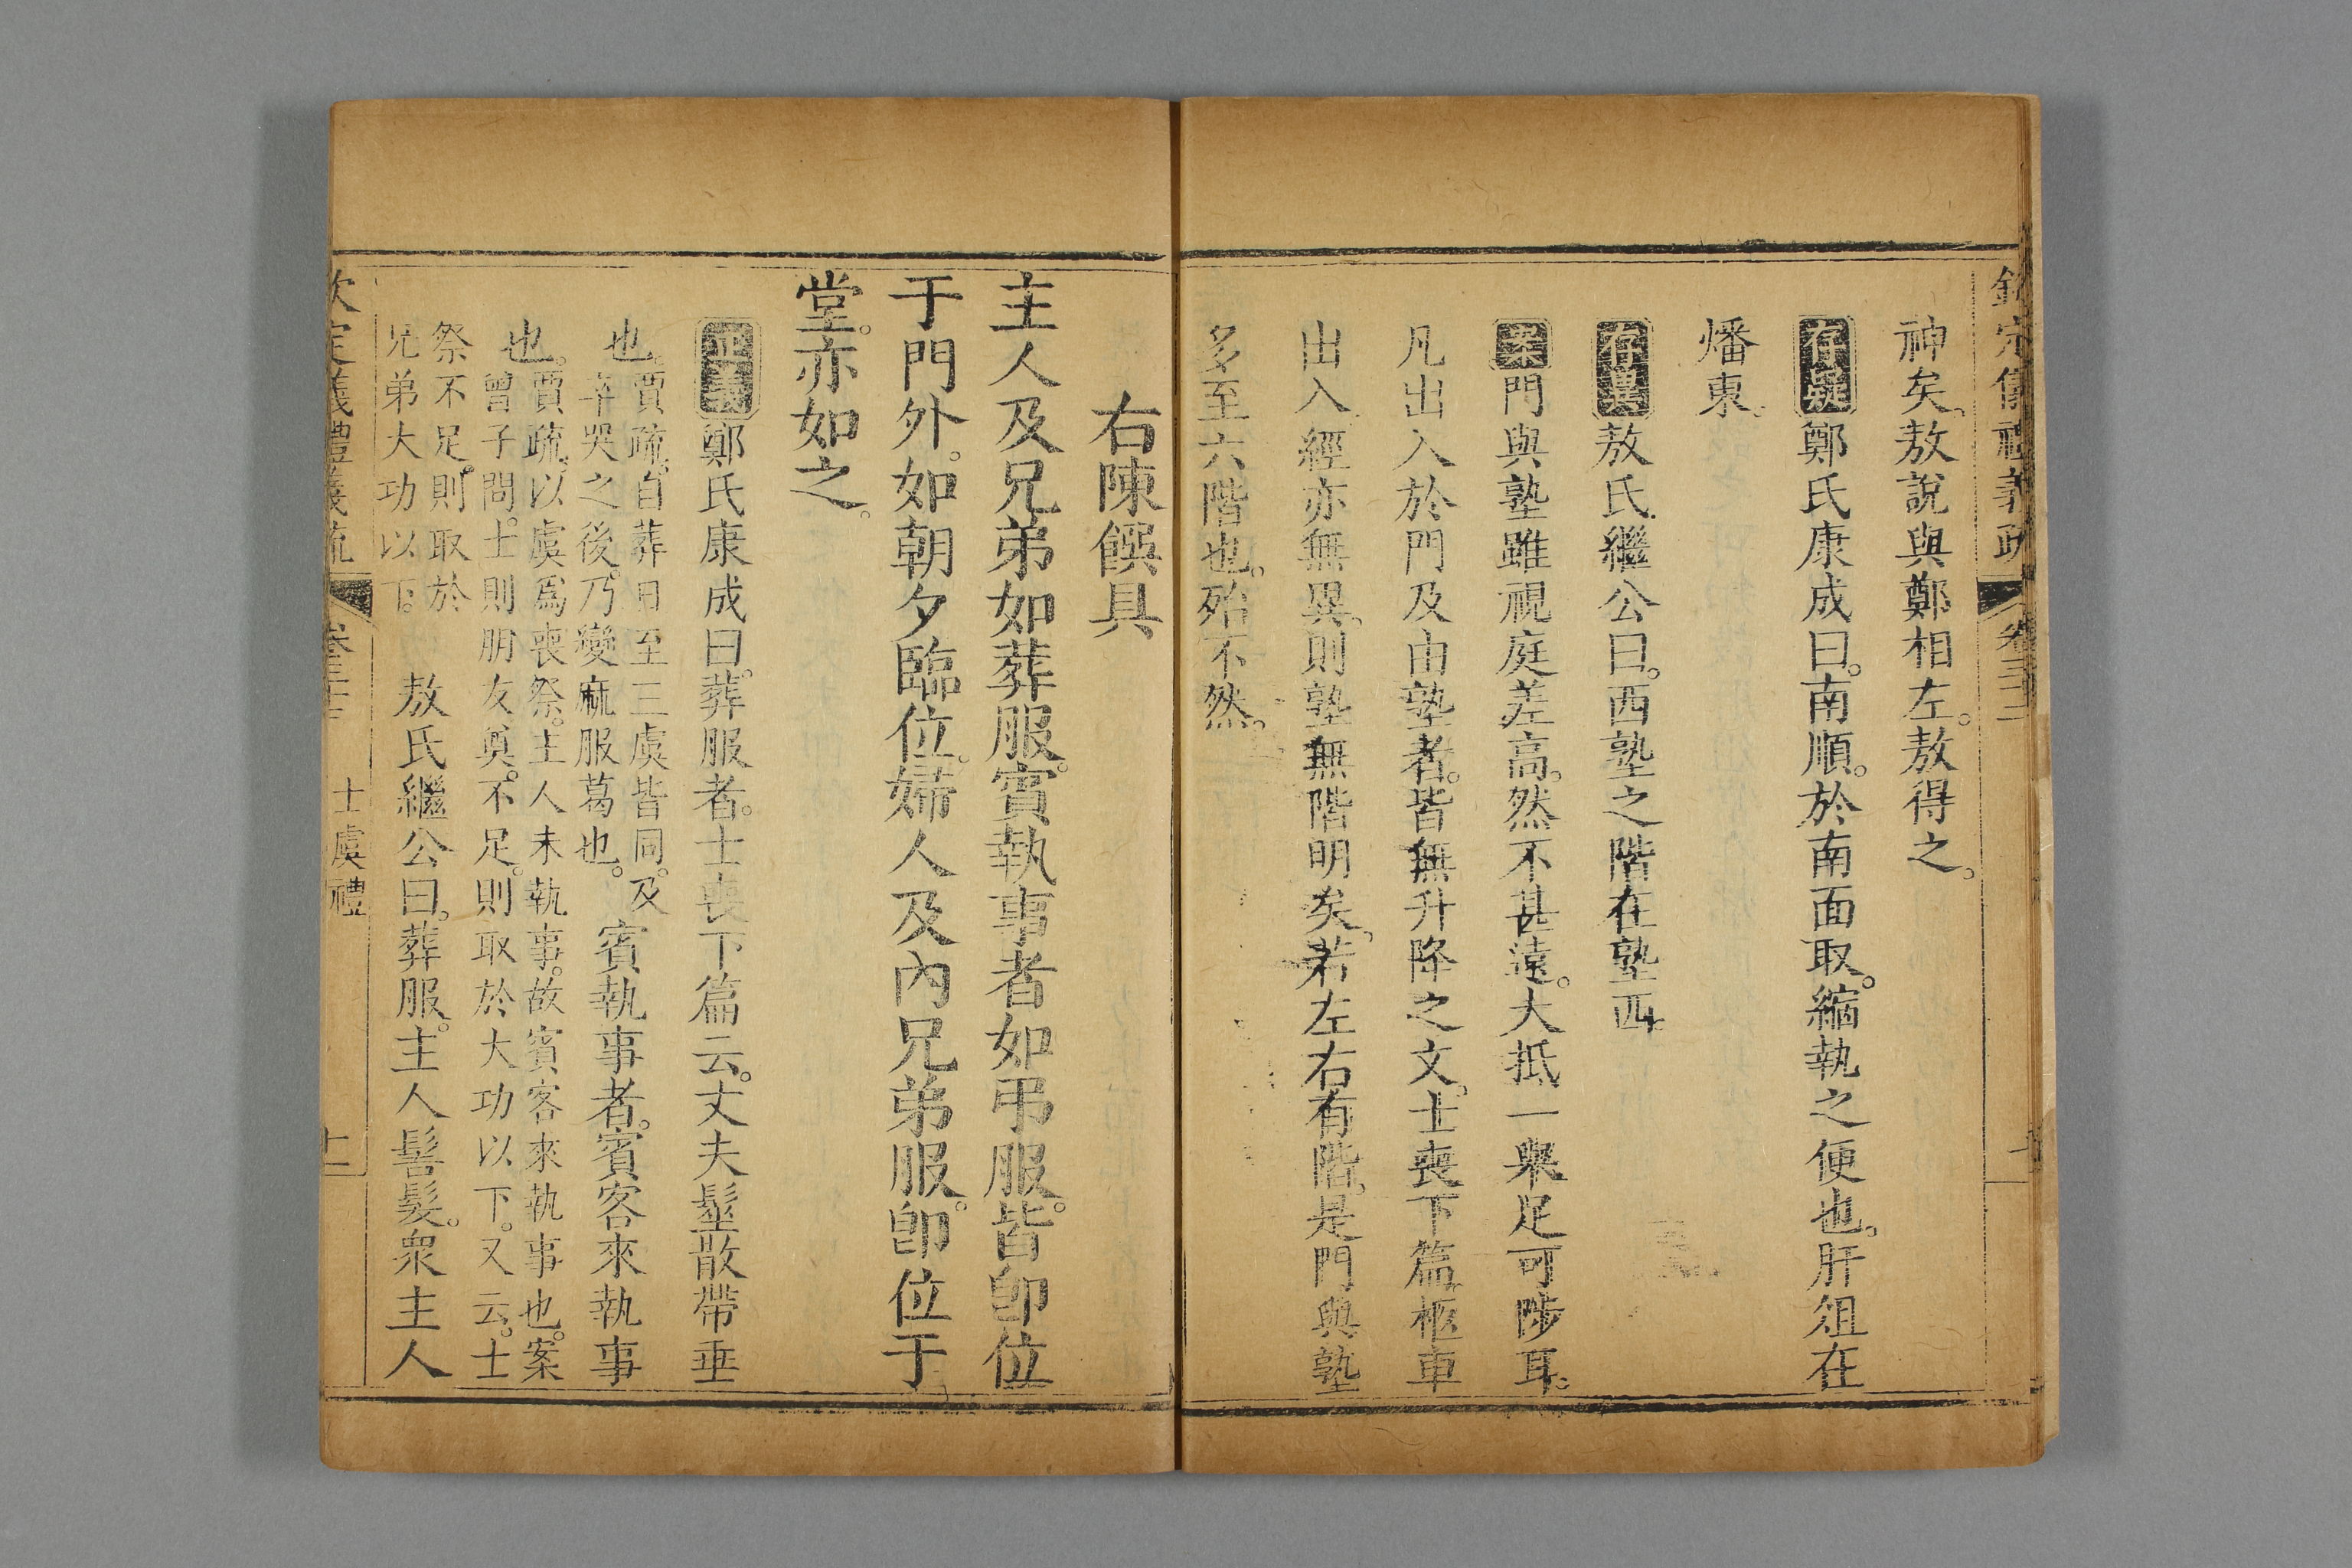 欽定儀禮義疏 卷三十二 十
神矣。敖說與鄭相左。敖得之。
存疑鄭氏康成曰。南順。於南面取。縮執之便也。肝俎在
燔東。
存異敖氏繼公曰。西塾之階在塾西。
案門與塾雖視庭差高。然不甚遠。大抵一舉足可陟耳。
凡出入於門及由塾者。皆無升降之文。士喪下篇。柩車
出入經亦無異。則塾無階明矣。若左右有階。是門與塾
多至六階也。殆不然。
右陳饌具
主人及兄弟如葬服。賓執事者如弔服。皆卽位
于門外。如朝夕臨位。婦人及內兄弟服。卽位于
堂。亦如之。
正義鄭氏康成曰。葬服者。士喪下篇云。丈夫髽散帶垂
也。賈疏。自葬日至三虞皆同。及
卒哭之後。乃變麻服葛也。賓執事者。賓客來執事
也。賈疏。以虞爲喪祭。主人未執事。故賓客來執事也。案
曾子問。士則朋友奠。不足。則取於大功以下。又云。士
祭不足。則取於
兄弟大功以下。敖氏繼公曰。葬服。主人髻髮。衆主人
欽定儀禮義疏 卷三十二 士虞禮 十一